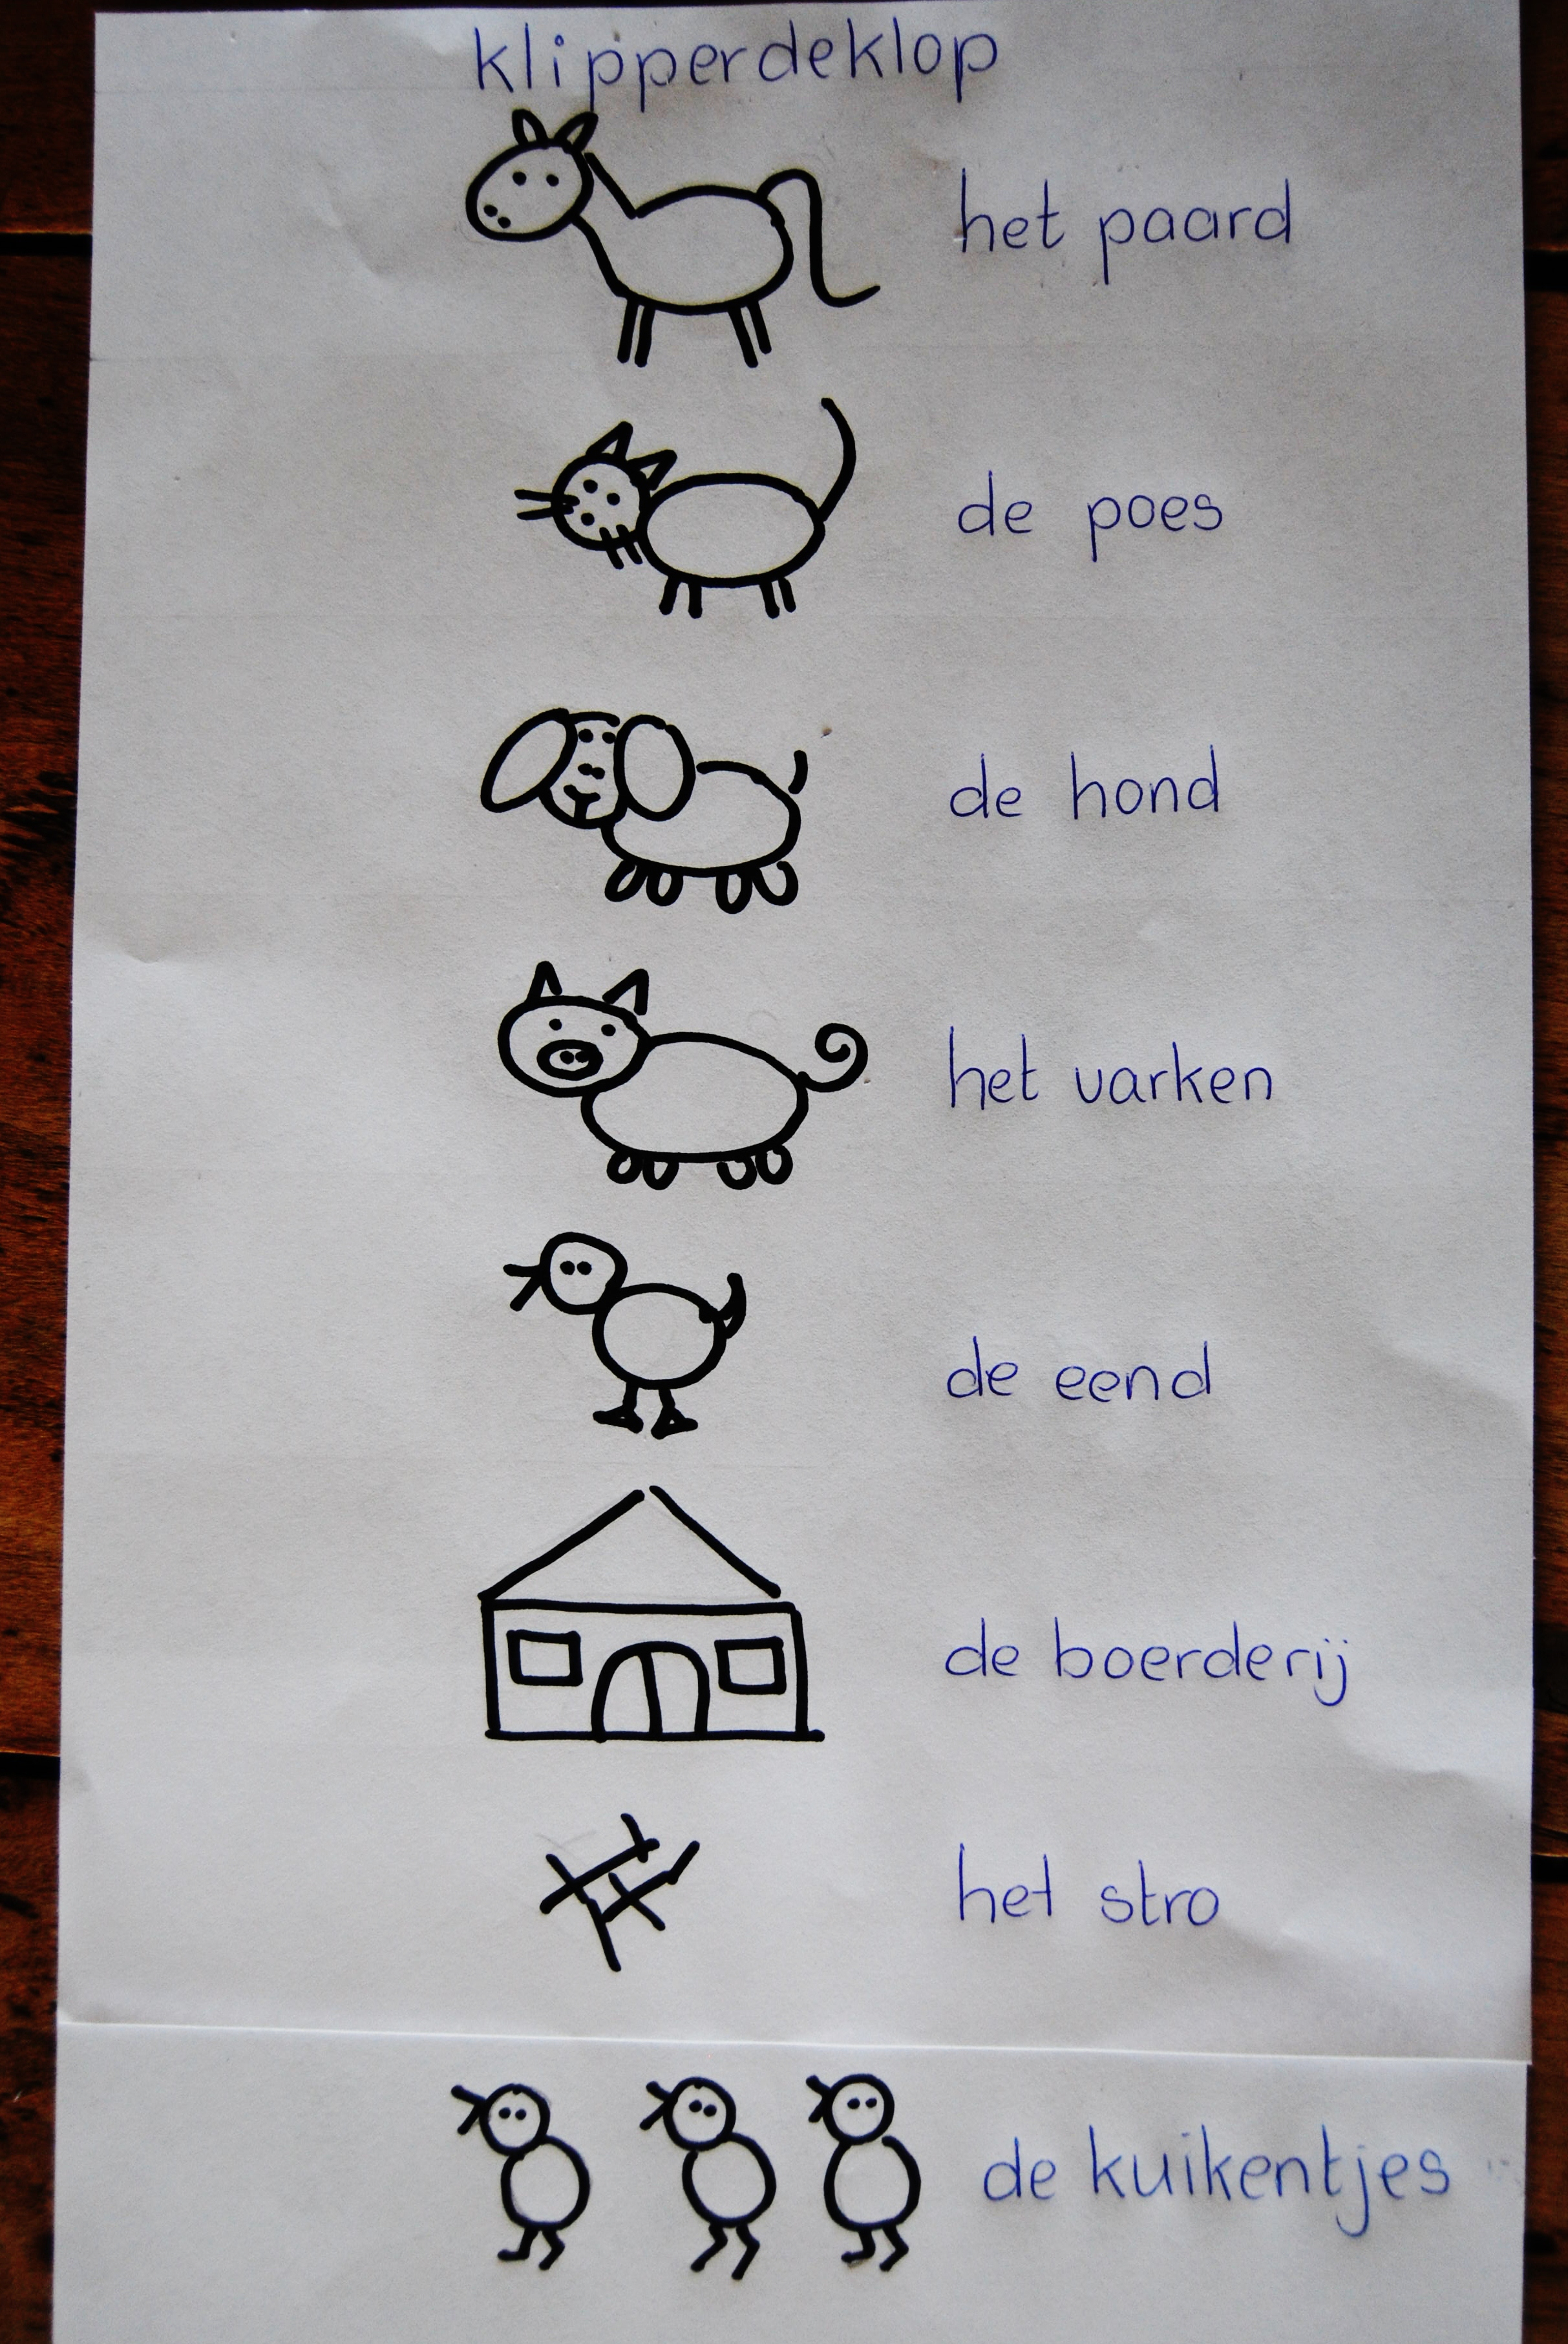 klipperdeklop
het paard
de poes
de hond
het varken
de eend
de boerderij
het stro
de kuikentjes